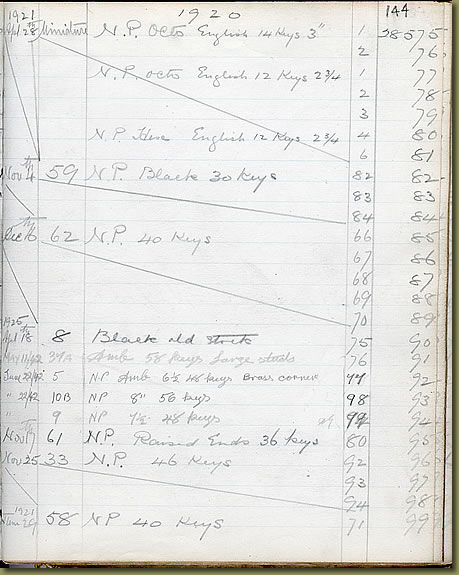 1921 1920 144
Apl 28th Miniature N.P. Octo English 14 Keys 3" 1 38575
2 76
N.P. octo English 12 Keys 2 3/4 1 77
2 78
3 79
N.P. Hex English 12 Keys 2 3/4 4 80
6 81
Nov 4th 59 N.P. Black 30 Keys 82 82
83 83
84 84
Dec 16th 62 N.P. 40 Keys 66 85
67 86
68 87
69 88
70 89
1925
Apl 18th 8 Black old 75 90
May 11/42 39A Amb 58 Keys large studs 76 91
June 22/42 5 NP Amb 6 1/2 48 Keys Brass corner 77 92
" 22/42 10B NP 8" 56 Keys 98 93
" 9 NP 7 1/2 48 Keys 94
Nov 17 61 N.P. Raised Ends 36 Keys 80 95
Nov 25 33 N.P. 46 Keys 92 96
93 97
94 98
1921
58 NP 40 Keys 71 99